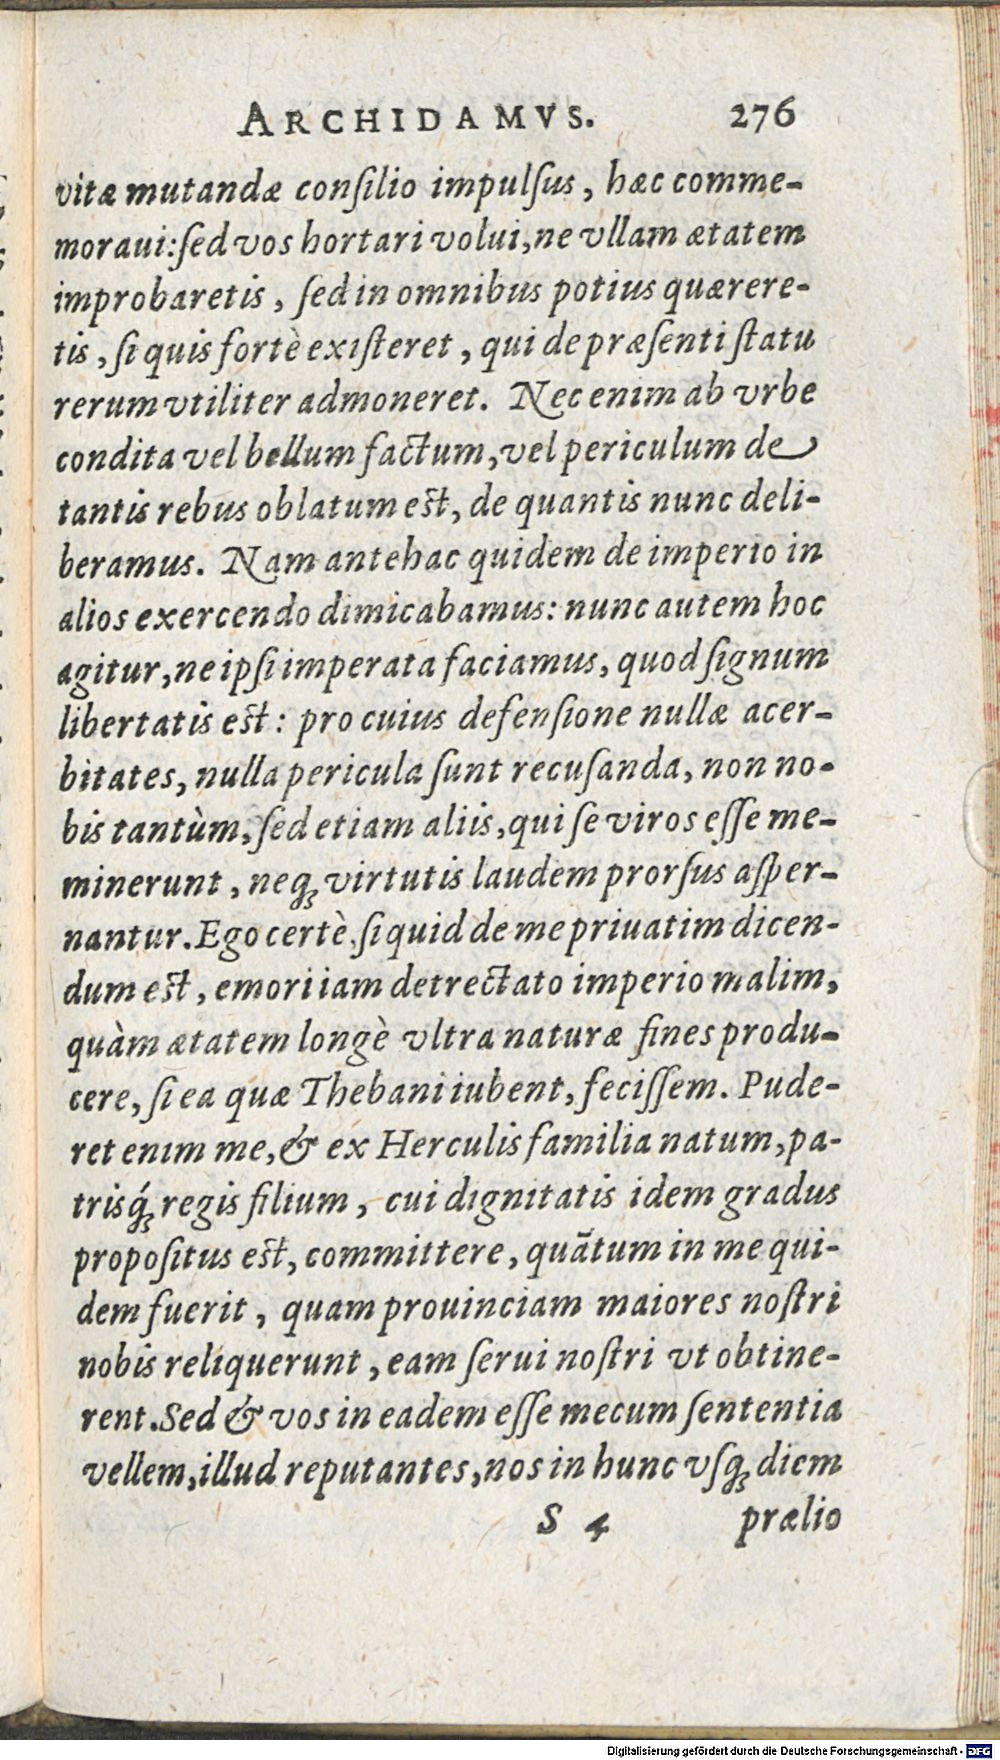 ARCHIDAMVS. 276
vitæ mutandæ conſilio impulſus, hæc comme-
moraui: ſed vos hortari volui, ne vllam ætatem
improbaretis, ſed in omnibus potius quærere-
tis, ſi quis fortè exiſteret, qui de præſenti ſtatu
rerum vtiliter admoneret. Nec enim ab vrbe
condita vel bellum factum, vel periculum de
tantis rebus oblatum eſt, de quantis nunc deli-
beramus. Nam antehac quidem de imperio in
alios exercendo dimicabamus: nunc autem hoc
agitur, ne ipſi imperata faciamus, quod ſignum
libertatis eſt: pro cuius defenſione nullæ acer-
bitates, nulla pericula ſunt recuſanda, non no-
bis tantùm, ſed etiam aliis, qui ſe viros eſſe me-
minerunt, neq; virtutis laudem prorſus aſper-
nantur. Ego certè, ſi quid de me priuatim dicen-
dum eſt, emori iam detrectato imperio malim,
quàm ætatem longè vltra naturæ fines produ-
cere, ſi ea quæ Thebani iubent, feciſſem. Pude-
ret enim me, & ex Herculis familia natum, pa-
triſq́; regis filium, cui dignitatis idem gradus
propoſitus eſt, committere, quãtum in me qui-
dem fuerit, quam prouinciam maiores noſtri
nobis reliquerunt, eam ſerui noſtri vt obtine-
rent. Sed & vos in eadem eſſe mecum ſententia
vellem, illud reputantes, nos in hunc vſq; diem
S 4 prælio
Digitalisierung gefördert durch die Deutsche Forschungsgemeinschaft - DFG